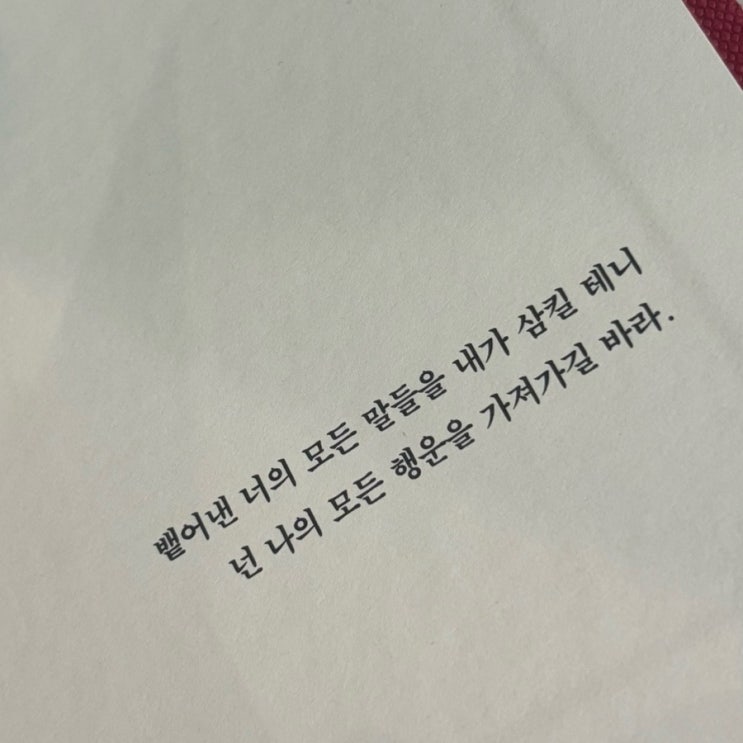 뱉어낸 너의 모든 말들을 내가 삼킬 테니
넌 나의 모든 행운을 가져가길 바라.